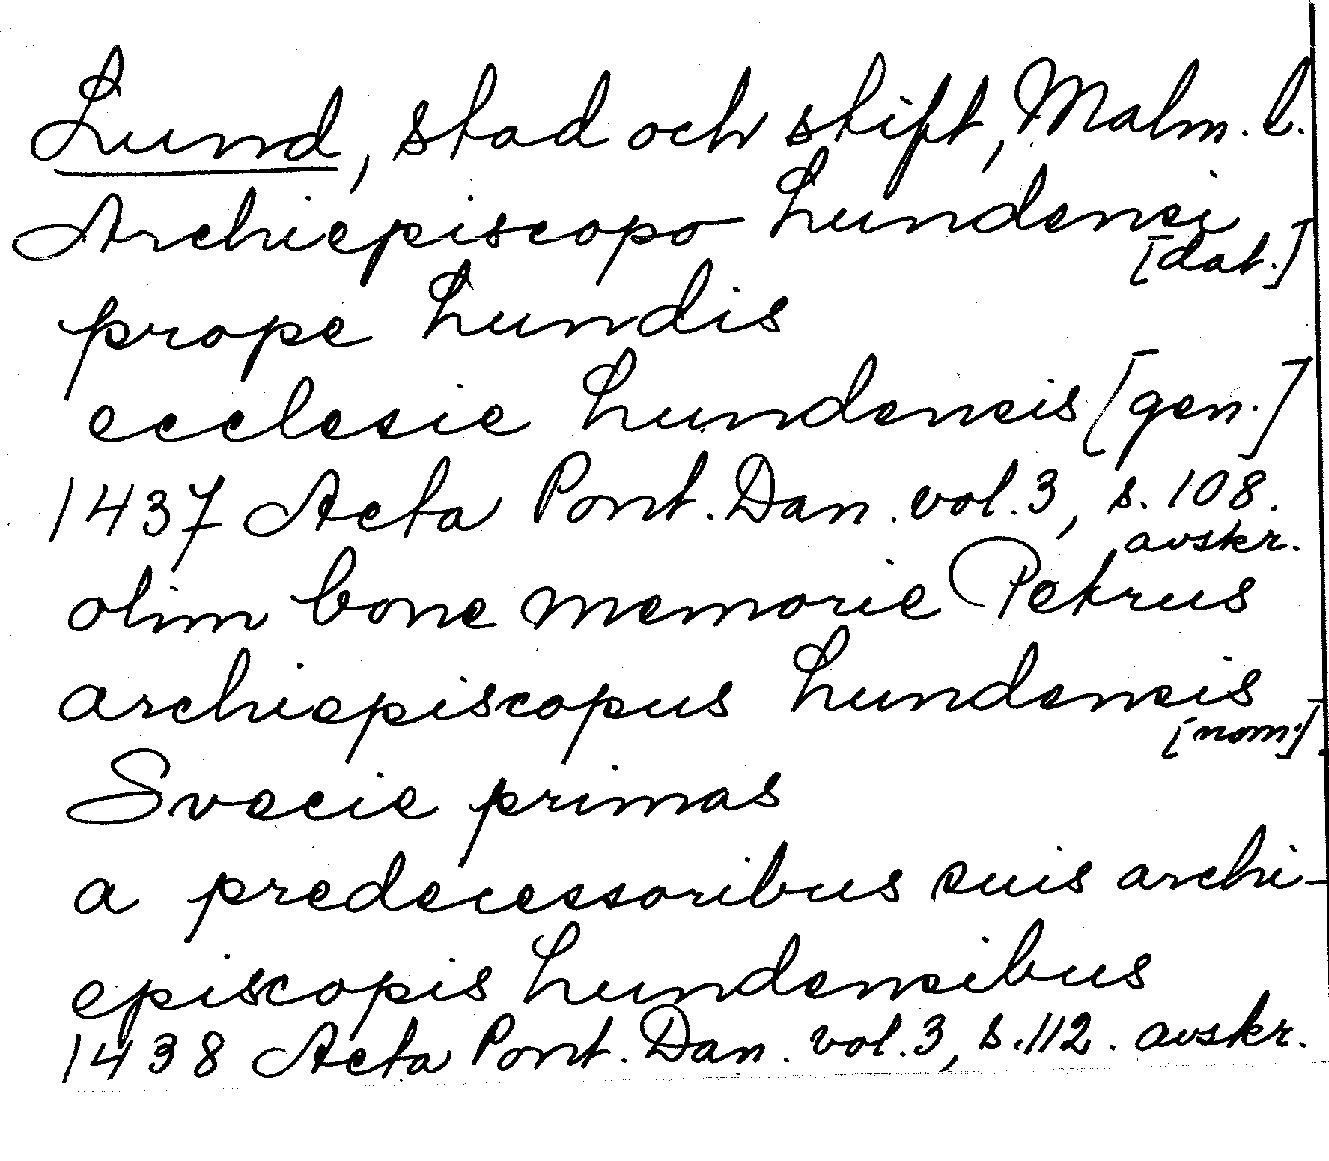 Lund, stad och stift, Malm. l.
Archiepiscopo Lundensi
[dat.]
prope Lundis
ecclesie Lundensis [gen.]
1437 Acta Pont. Dan. vol. 3, s. 108.
avskr.
olim bone memorie Petrus
archiepiscopus Lundensis
[nom.]
Svecie primas
a predecessoribus suis archi-
episcopis Lundensibus
1438 Acta Pont. Dan. vol. 3, s. 112. avskr.